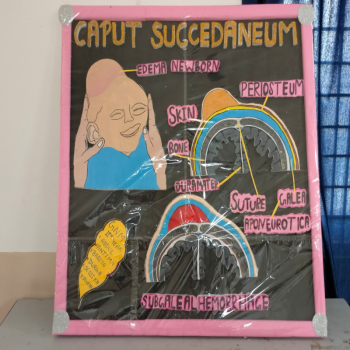 CAPUT SUCCEDANEUM
EDEMA NEWBORN
PERIOSTEUM
SKIN
BONE
DURAMATER
SUTURE
GALEA
APONEUROTICA
SUBGALEAL HEMORRHAGE